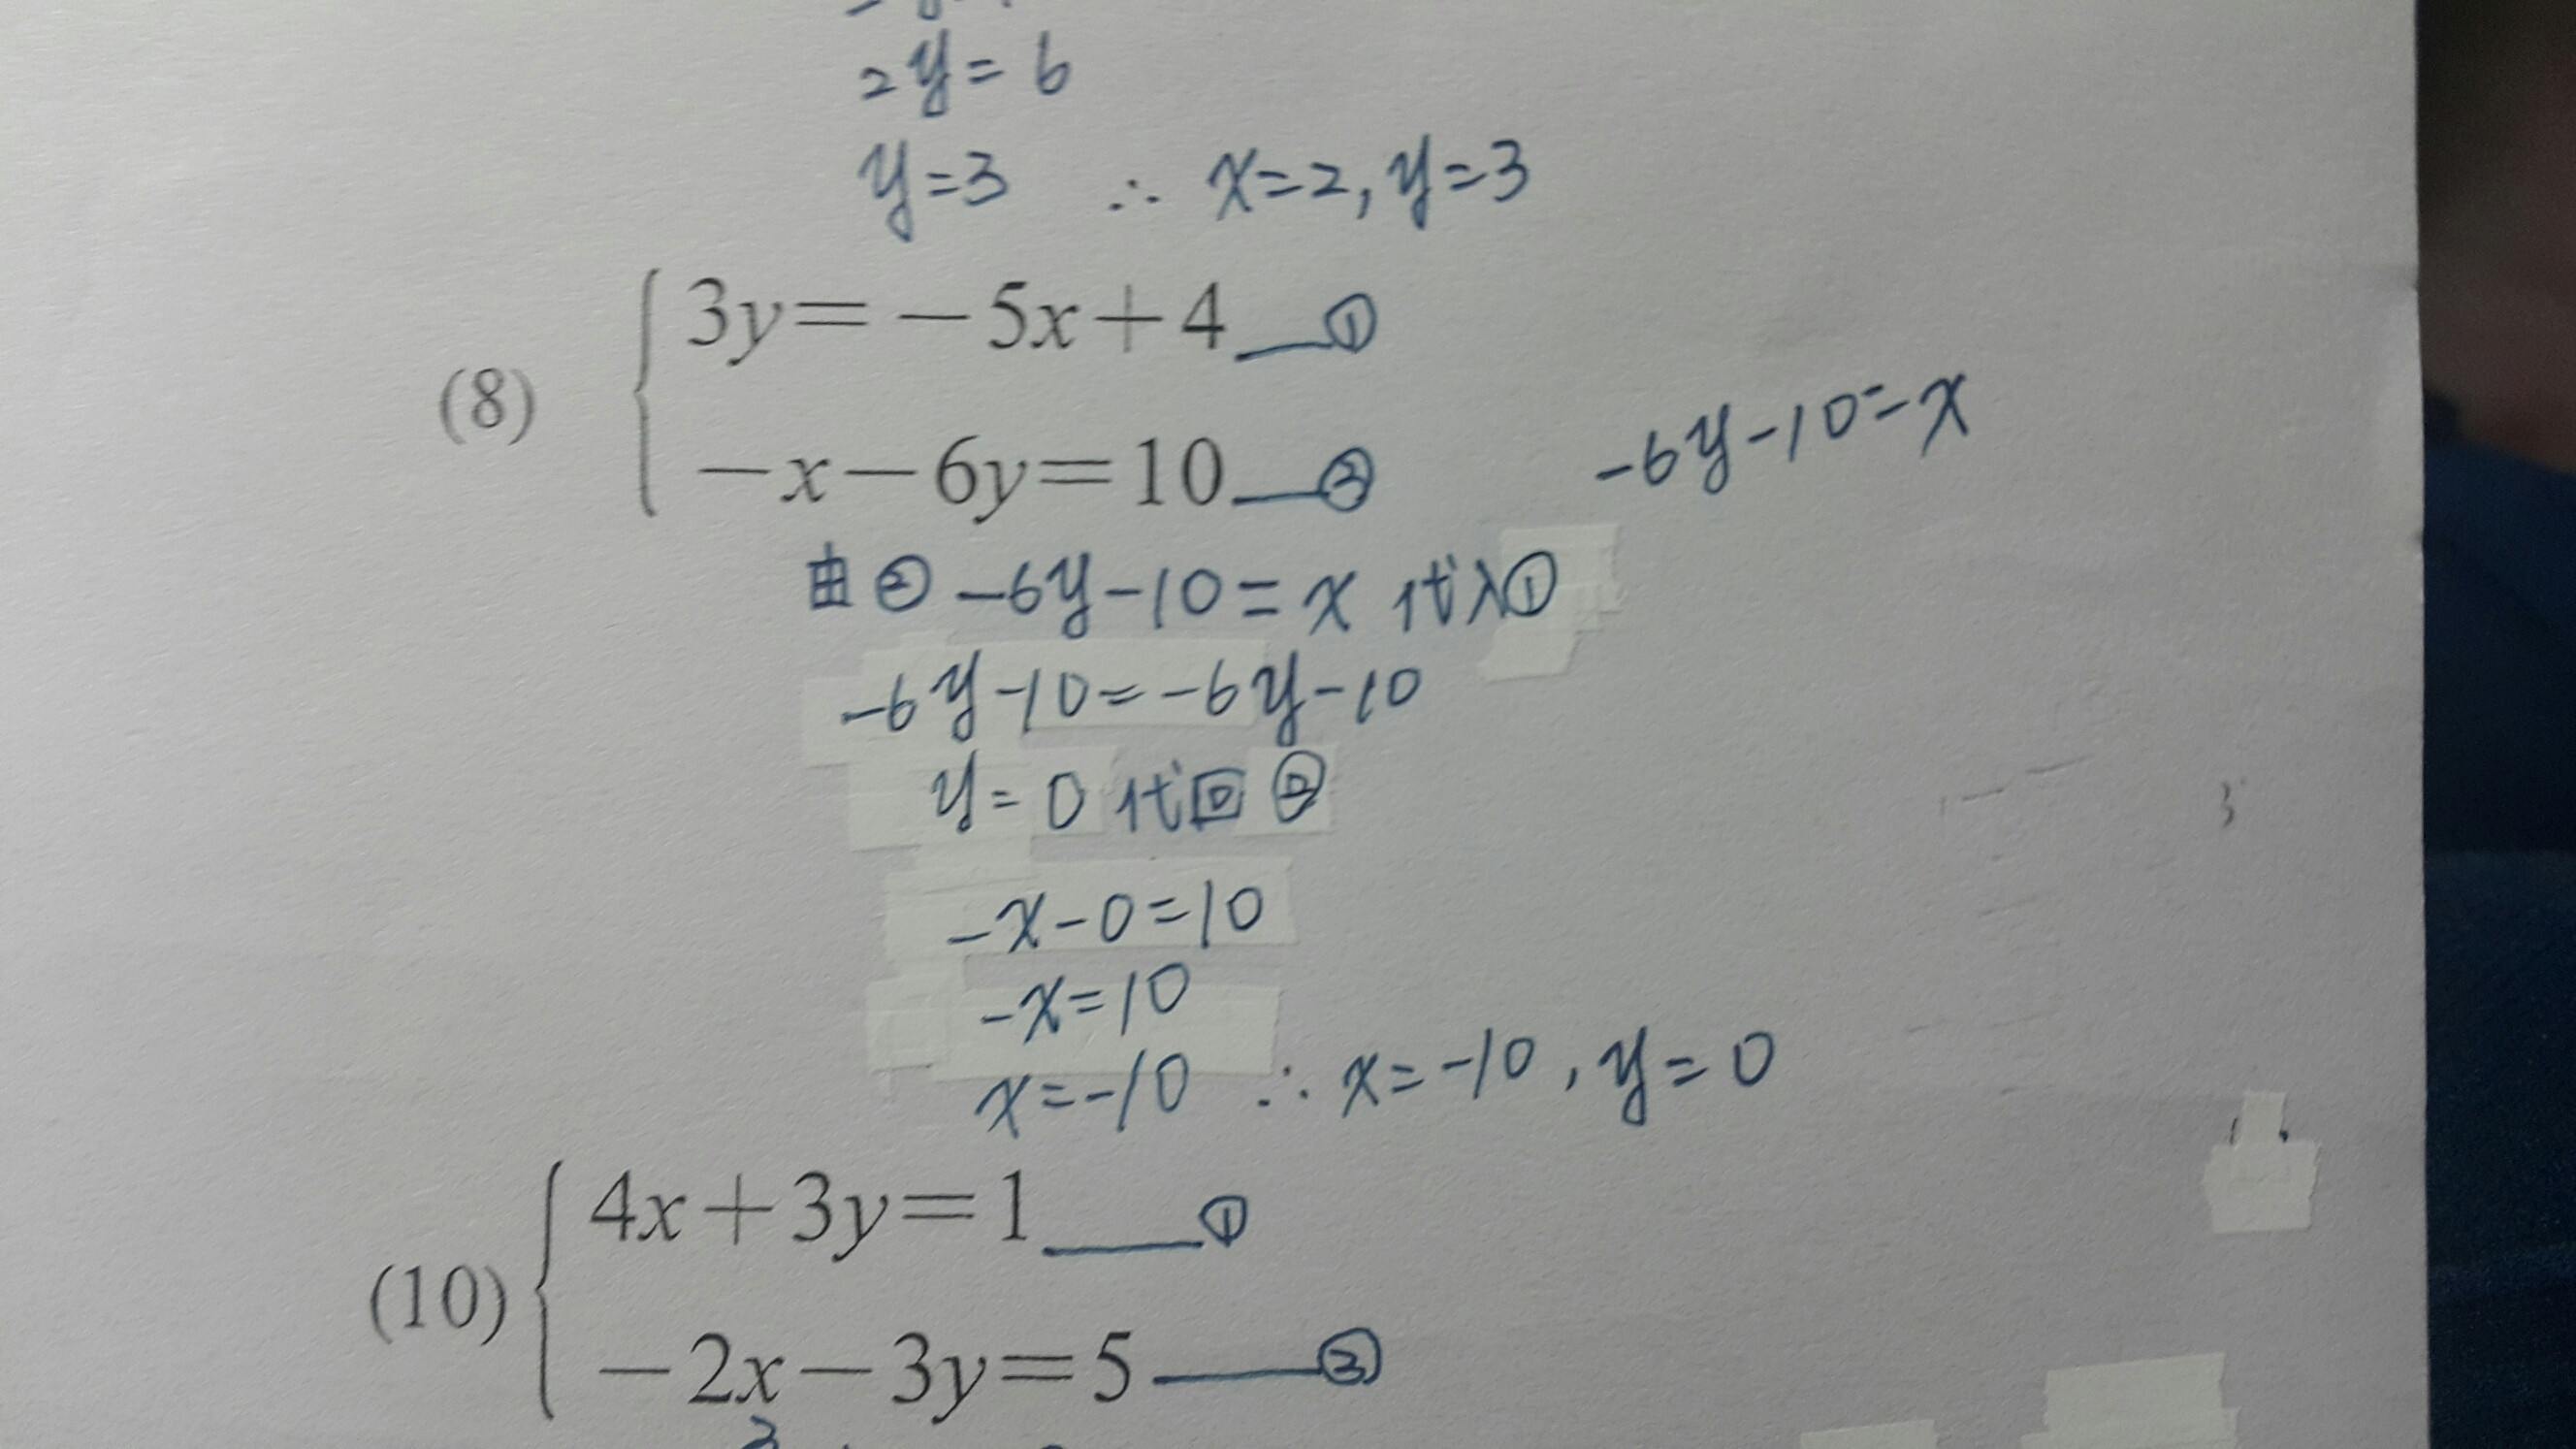 2y=6
y=3 ∴ x=2, y=3
(8) 3y=-5x+4 ①
-x-6y=10 ②
-6y-10=x
由② -6y-10=x 代入①
-6y-10=-6y-10
y=0 代回②
-x-0=10
-x=10
x=-10 ∴ x=-10, y=0
(10) 4x+3y=1 ①
-2x-3y=5 ②